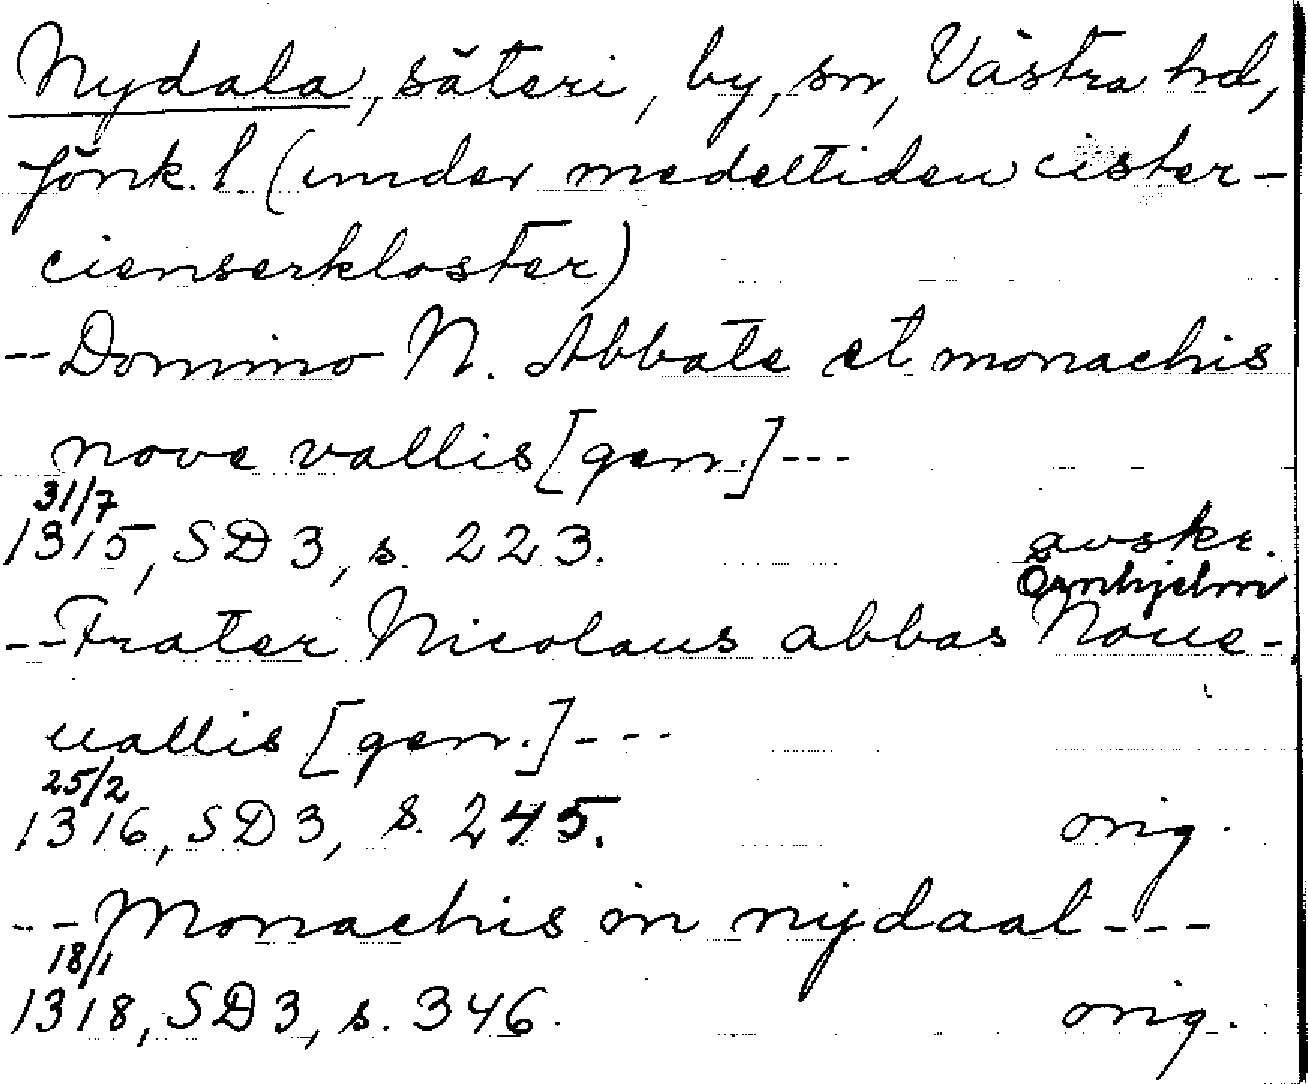 Nydala, säteri, by, sn, Västra hd,
Jönk. l (under medeltiden cister-
cienserkloster)
-- Domino N. Abbate et monachis
nove vallis [gen.] ---
31/7
1315, SD 3, s. 223. avskr.
Örnhjelm
-- Frater Nicolaus abbas Noue-
uallis [gen.] ---
25/2
1316, SD 3, s. 245. orig.
-- Monachis in nijdaal ---
18/1
1318, SD 3, s. 346. orig.